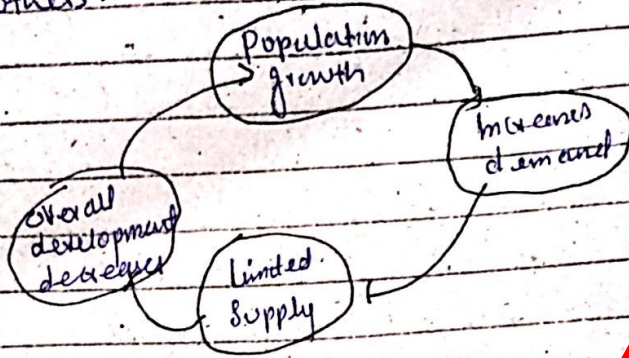 Population
growth
Increases
demand
Limited
Supply
Overall
development
decreases